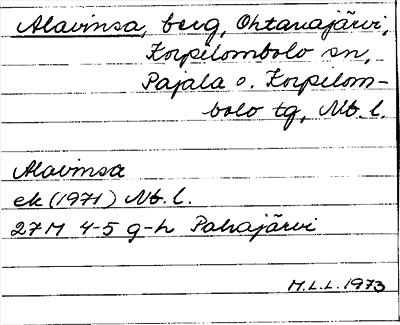 Alavinsa, berg, Ohtanajärvi,
Korpilombolo sn,
Pajala o. Korpilom-
bolo tg, Nb. l.
Alavinsa
ek (1971) Nb. l.
27M 4-5 g-h Pahajärvi
M.L.L. 1973